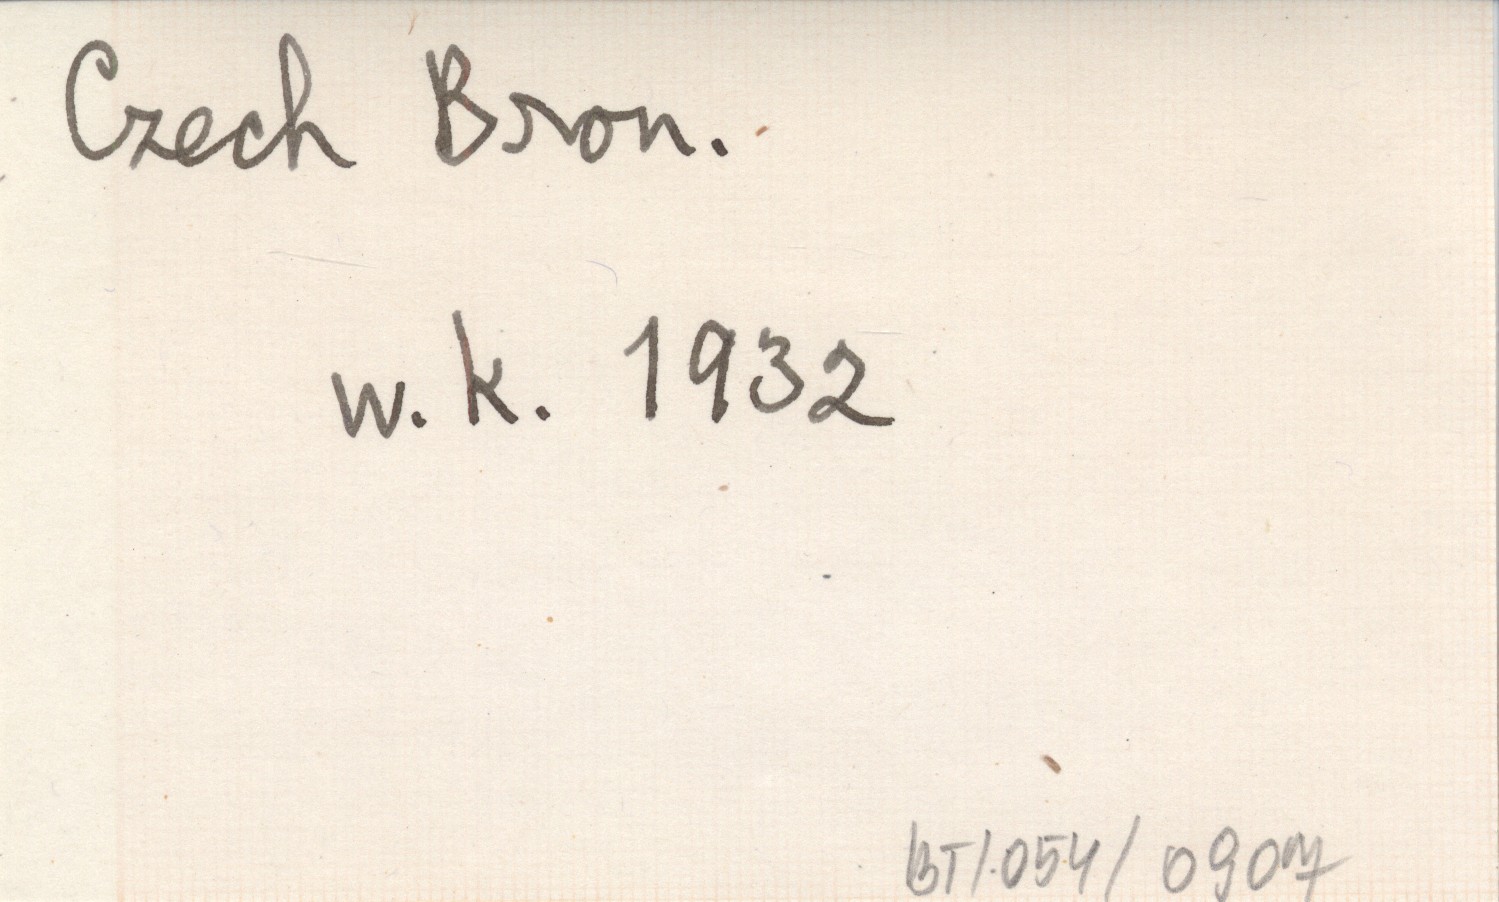 Czech Bron.
w.k. 1932
BT/054/0907